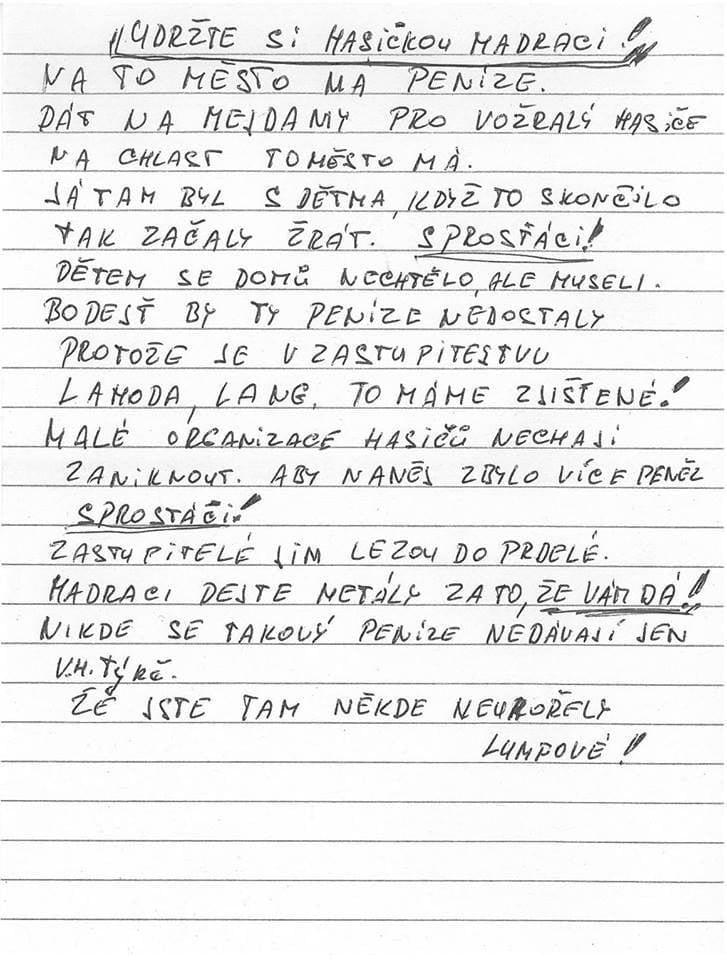 UDRŽTE SI HASIČKOU MADRACI!
NA TO MĚSTO MÁ PENÍZE.
DÁT NA MEJDAMY PRO VOŽRALÝ HASIČE
NA CHLAST TOMĚSTO MÁ.
JÁ TAM BYL S DĚTMA, KDYŽ TO SKONČILO
TAK ZAČALY ŽRÁT. SPROSŤÁCI!
DĚTEM SE DOMŮ NECHTĚLO, ALE MUSELI.
BODEJŤ BY TY PENÍZE NEDOSTALY
PROTOŽE JE V ZASTUPITESTVU
LAHODA, LANG, TO MÁME ZJIŠTENÉ!
MALÉ ORGANIZACE HASIČŮ NECHAJÍ
ZANIKNOUT. ABY NANĚJ ZBYLO VÍCE PENĚZ
SPROSTÁČI!
ZASTUPITELÉ JIM LEZOU DO PRDELÉ.
MADRACI DEJTE METÁLY ZA TO, ŽE VÁM DÁ!
NIKDE SE TAKOVÝ PENÍZE NEDÁVAJÍ JEN
V.H.TÝNĚ.
ŽE JSTE TAM NĚKDE NEUHOŘELY
LUMPOVÉ!